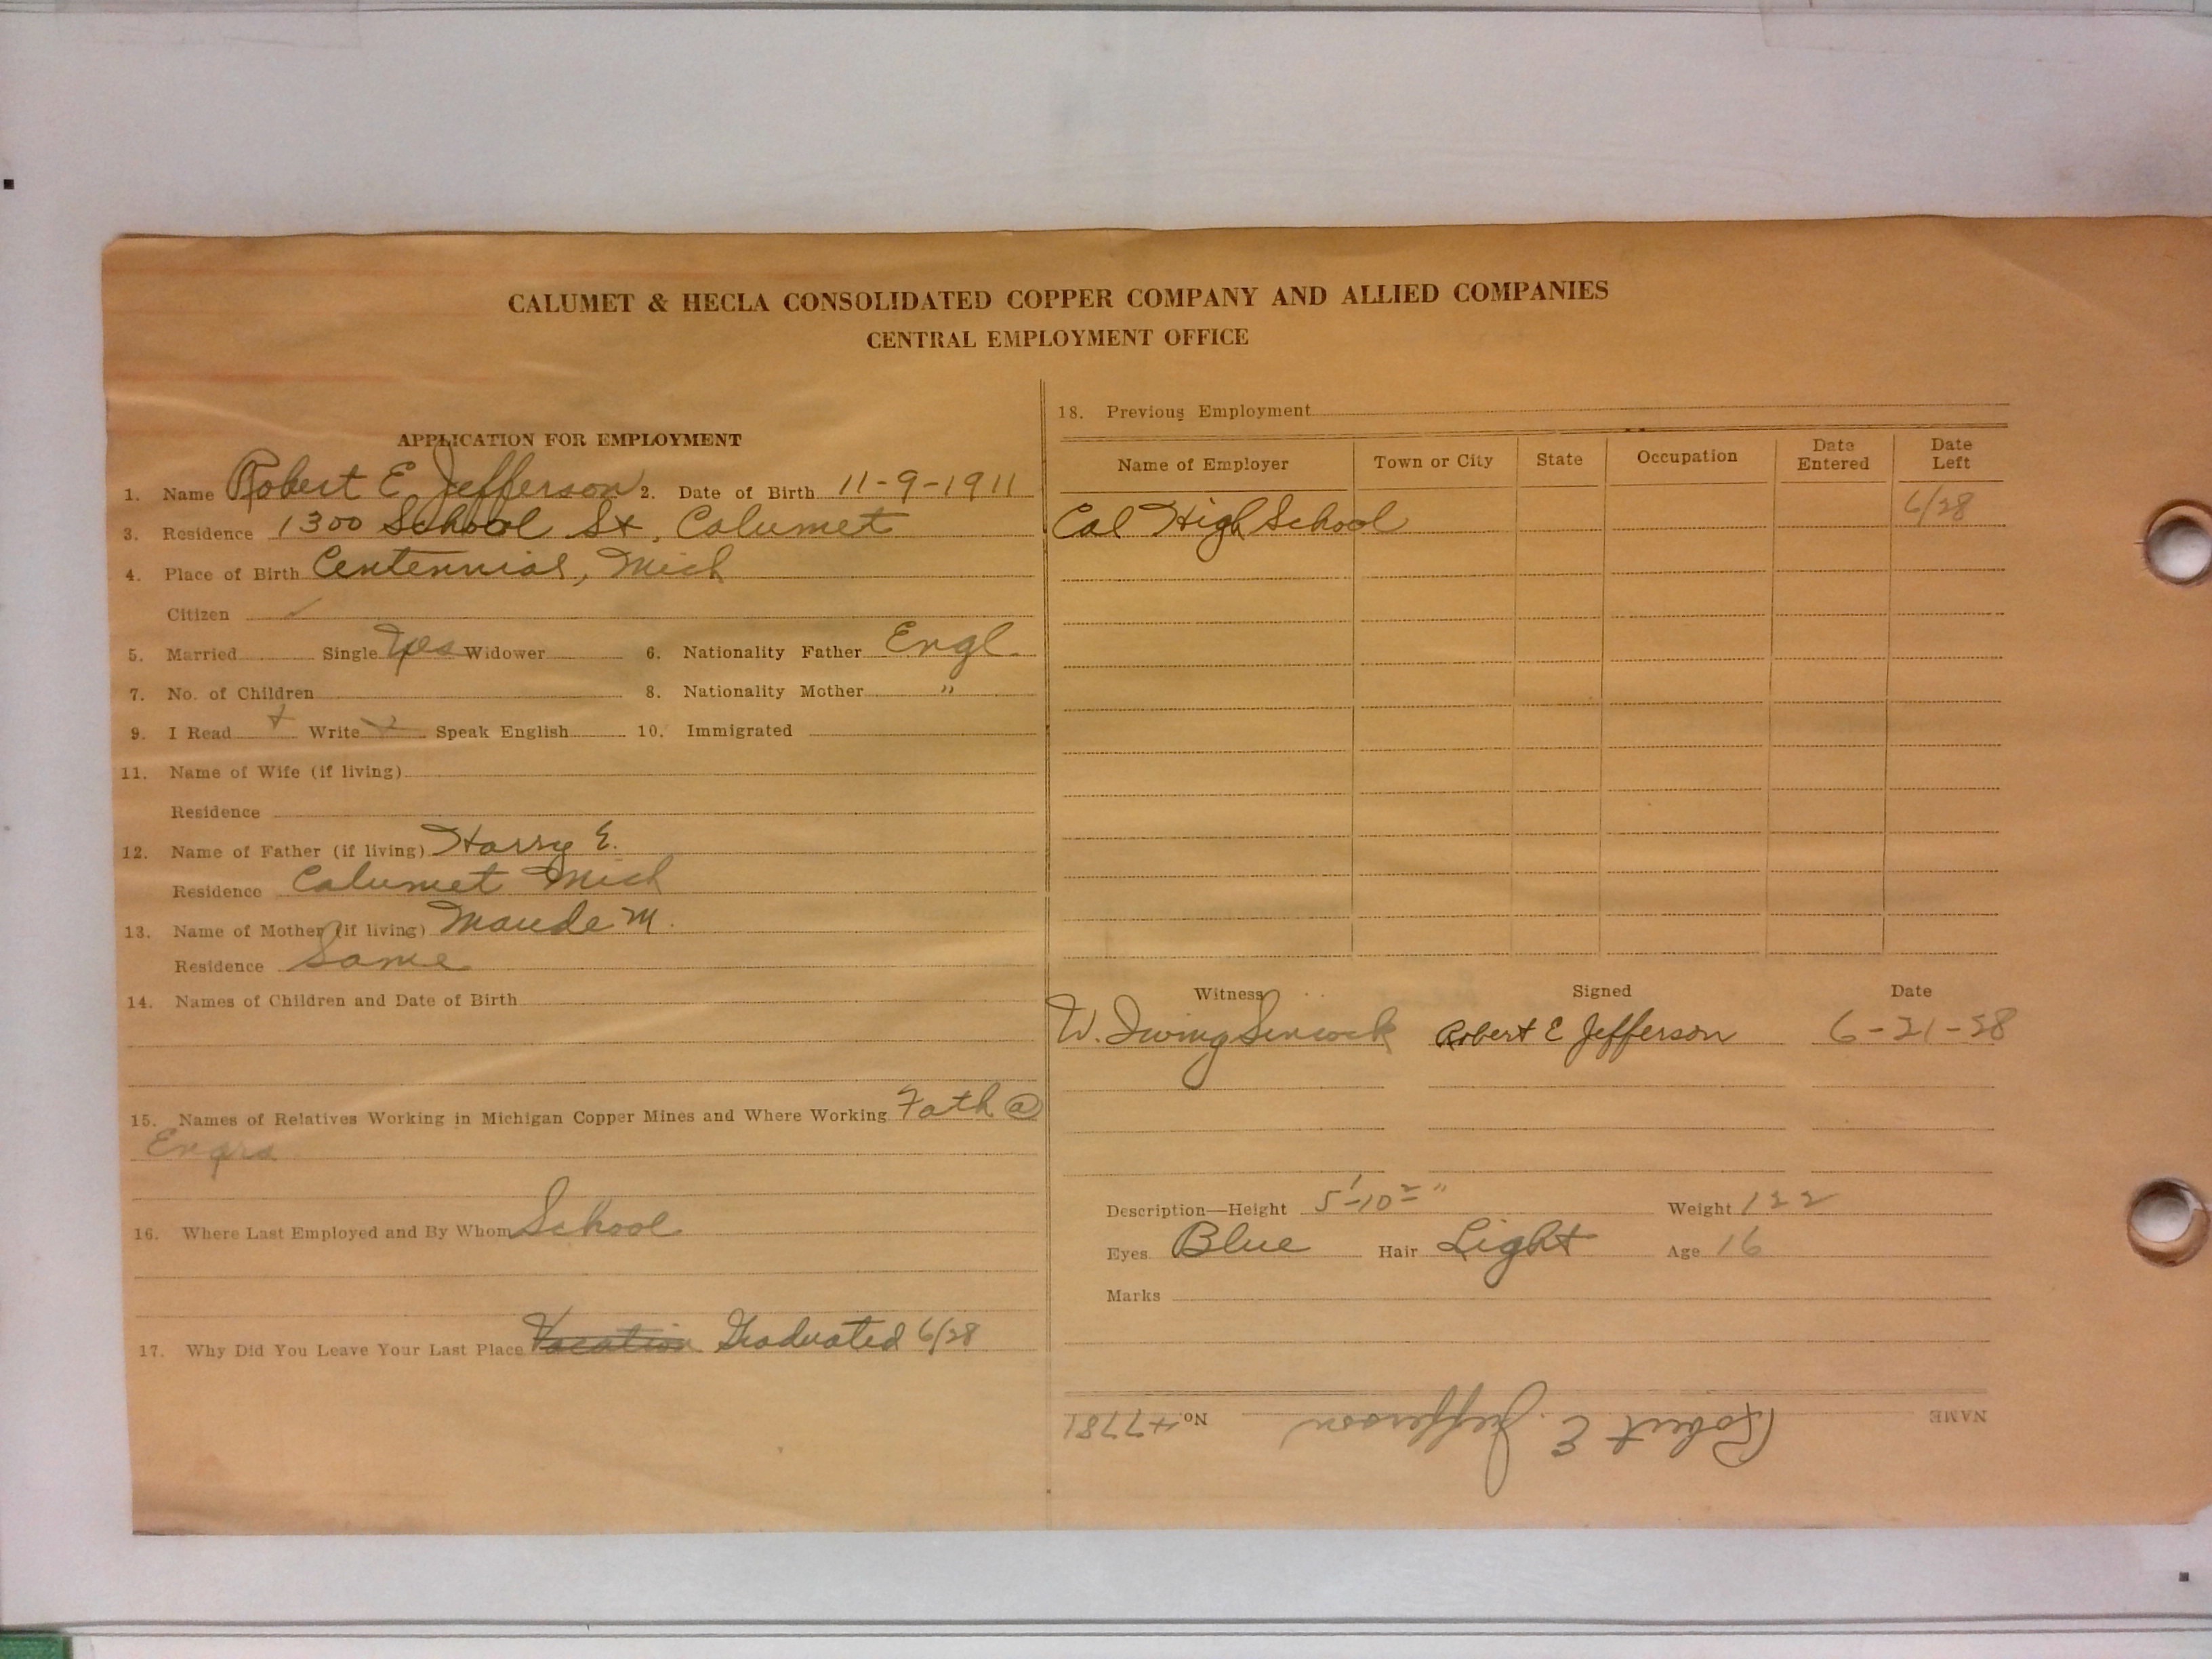 CALUMET & HECLA CONSOLIDATED COPPER COMPANY AND ALLIED COMPANIES
CENTRAL EMPLOYMENT OFFICE
APPLICATION FOR EMPLOYMENT
1. Name Robert E Jefferson 2. Date of Birth 11-9-1911
3. Residence 1300 School St, Calumet
4. Place of Birth Centennial, Mich
Citizen ✓
5. Married Single Yes Widower 6. Nationality Father Engl.
7. No. of Children 8. Nationality Mother "
9. I Read + Write + Speak English 10. Immigrated
11. Name of Wife (if living)
Residence
12. Name of Father (if living) Harry E.
Residence Calumet Mich
13. Name of Mother (if living) Maude M.
Residence Same
14. Names of Children and Date of Birth
15. Names of Relatives Working in Michigan Copper Mines and Where Working Fath @
Engrs
16. Where Last Employed and By Whom School
17. Why Did You Leave Your Last Place Vacation Graduated 6/28
18. Previous Employment
Name of Employer Town or City State Occupation Date Entered Date Left
Cal High School 6/28
Witness Signed Date
W. Irving Robert E Jefferson 6-21-28
Description—Height 5'-10 " Weight 122
Eyes Blue Hair Light Age 16
Marks
NAME Robert E. Jefferson No. 47781